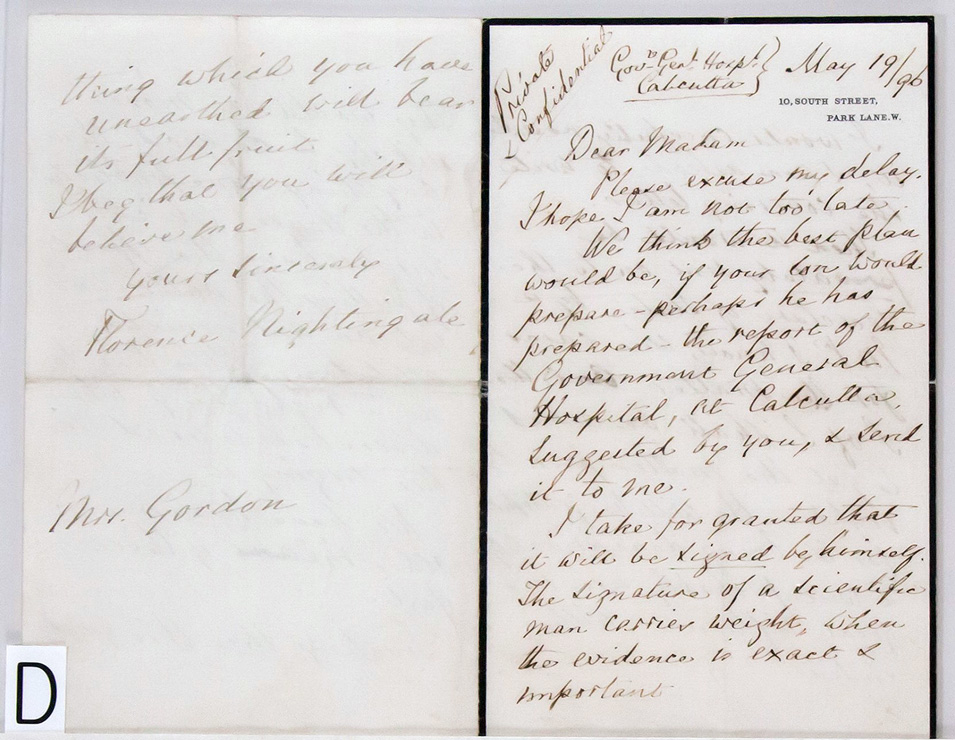 Private
& Confidential
Govt Genl Hospl
Calcutta
May 19/96
10, SOUTH STREET,
PARK LANE. W.
Dear Madam
Please excuse my delay.
I hope I am not too late.
We think the best plan
would be, if your son would
prepare - perhaps he has
prepared - the report of the
Government General
Hospital, at Calcutta,
suggested by you, & send
it to me.
I take for granted that
it will be signed by himself.
The signature of a scientific
man carries weight, when
the evidence is exact &
important
thing which you have
unearthed will bear
its full fruit
I beg that you will
believe me
yours sincerely
Florence Nightingale
Mrs. Gordon
D